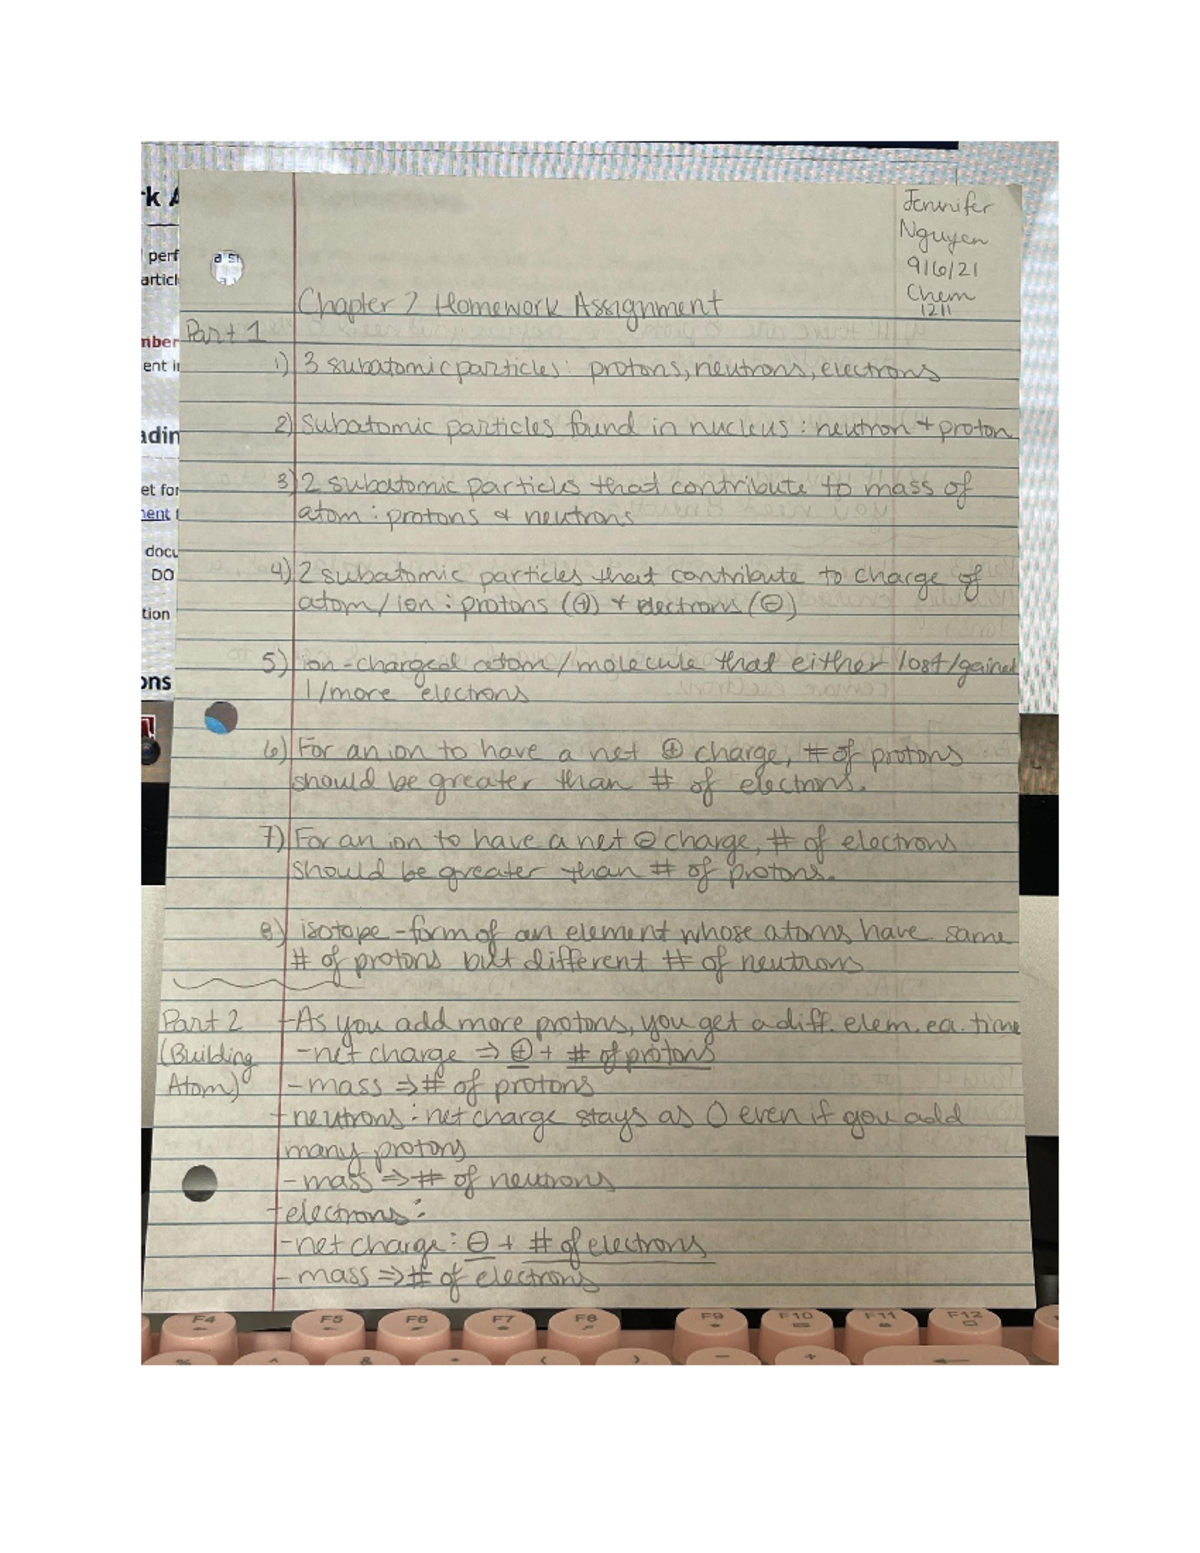 Jennifer
Nguyen
9/6/21
Chem
1211
Chapter 2 Homework Assignment
Part 1
1) 3 subatomic particles: protons, neutrons, electrons
2) Subatomic particles found in nucleus: neutron + proton
3) 2 subatomic particles that contribute to mass of
atom: protons & neutrons
4) 2 subatomic particles that contribute to charge of
atom/ion: protons (⊕) + electrons (⊖)
5) ion - charged atom/molecule that either lost/gained
1/more electrons
6) For an ion to have a net ⊕ charge, # of protons
should be greater than # of electrons.
7) For an ion to have a net ⊖ charge, # of electrons
should be greater than # of protons.
8) isotope - form of an element whose atoms have same
# of protons but different # of neutrons
Part 2 + As you add more protons, you get a diff. elem. ea. time
(Building - net charge ⇒ ⊕ + # of protons
Atom) - mass ⇒ # of protons
+ neutrons: net charge stays as 0 even if you add
many protons
- mass ⇒ # of neutrons
+ electrons:
- net charge: ⊖ + # of electrons
- mass ⇒ # of electrons
rk A
perf
article
mber
ent i
adin
et for
ment
docu
DO
tion
ons
F4 F5 F6 F7 F8 F9 F10 F11 F12
% ^ & * ( ) - +